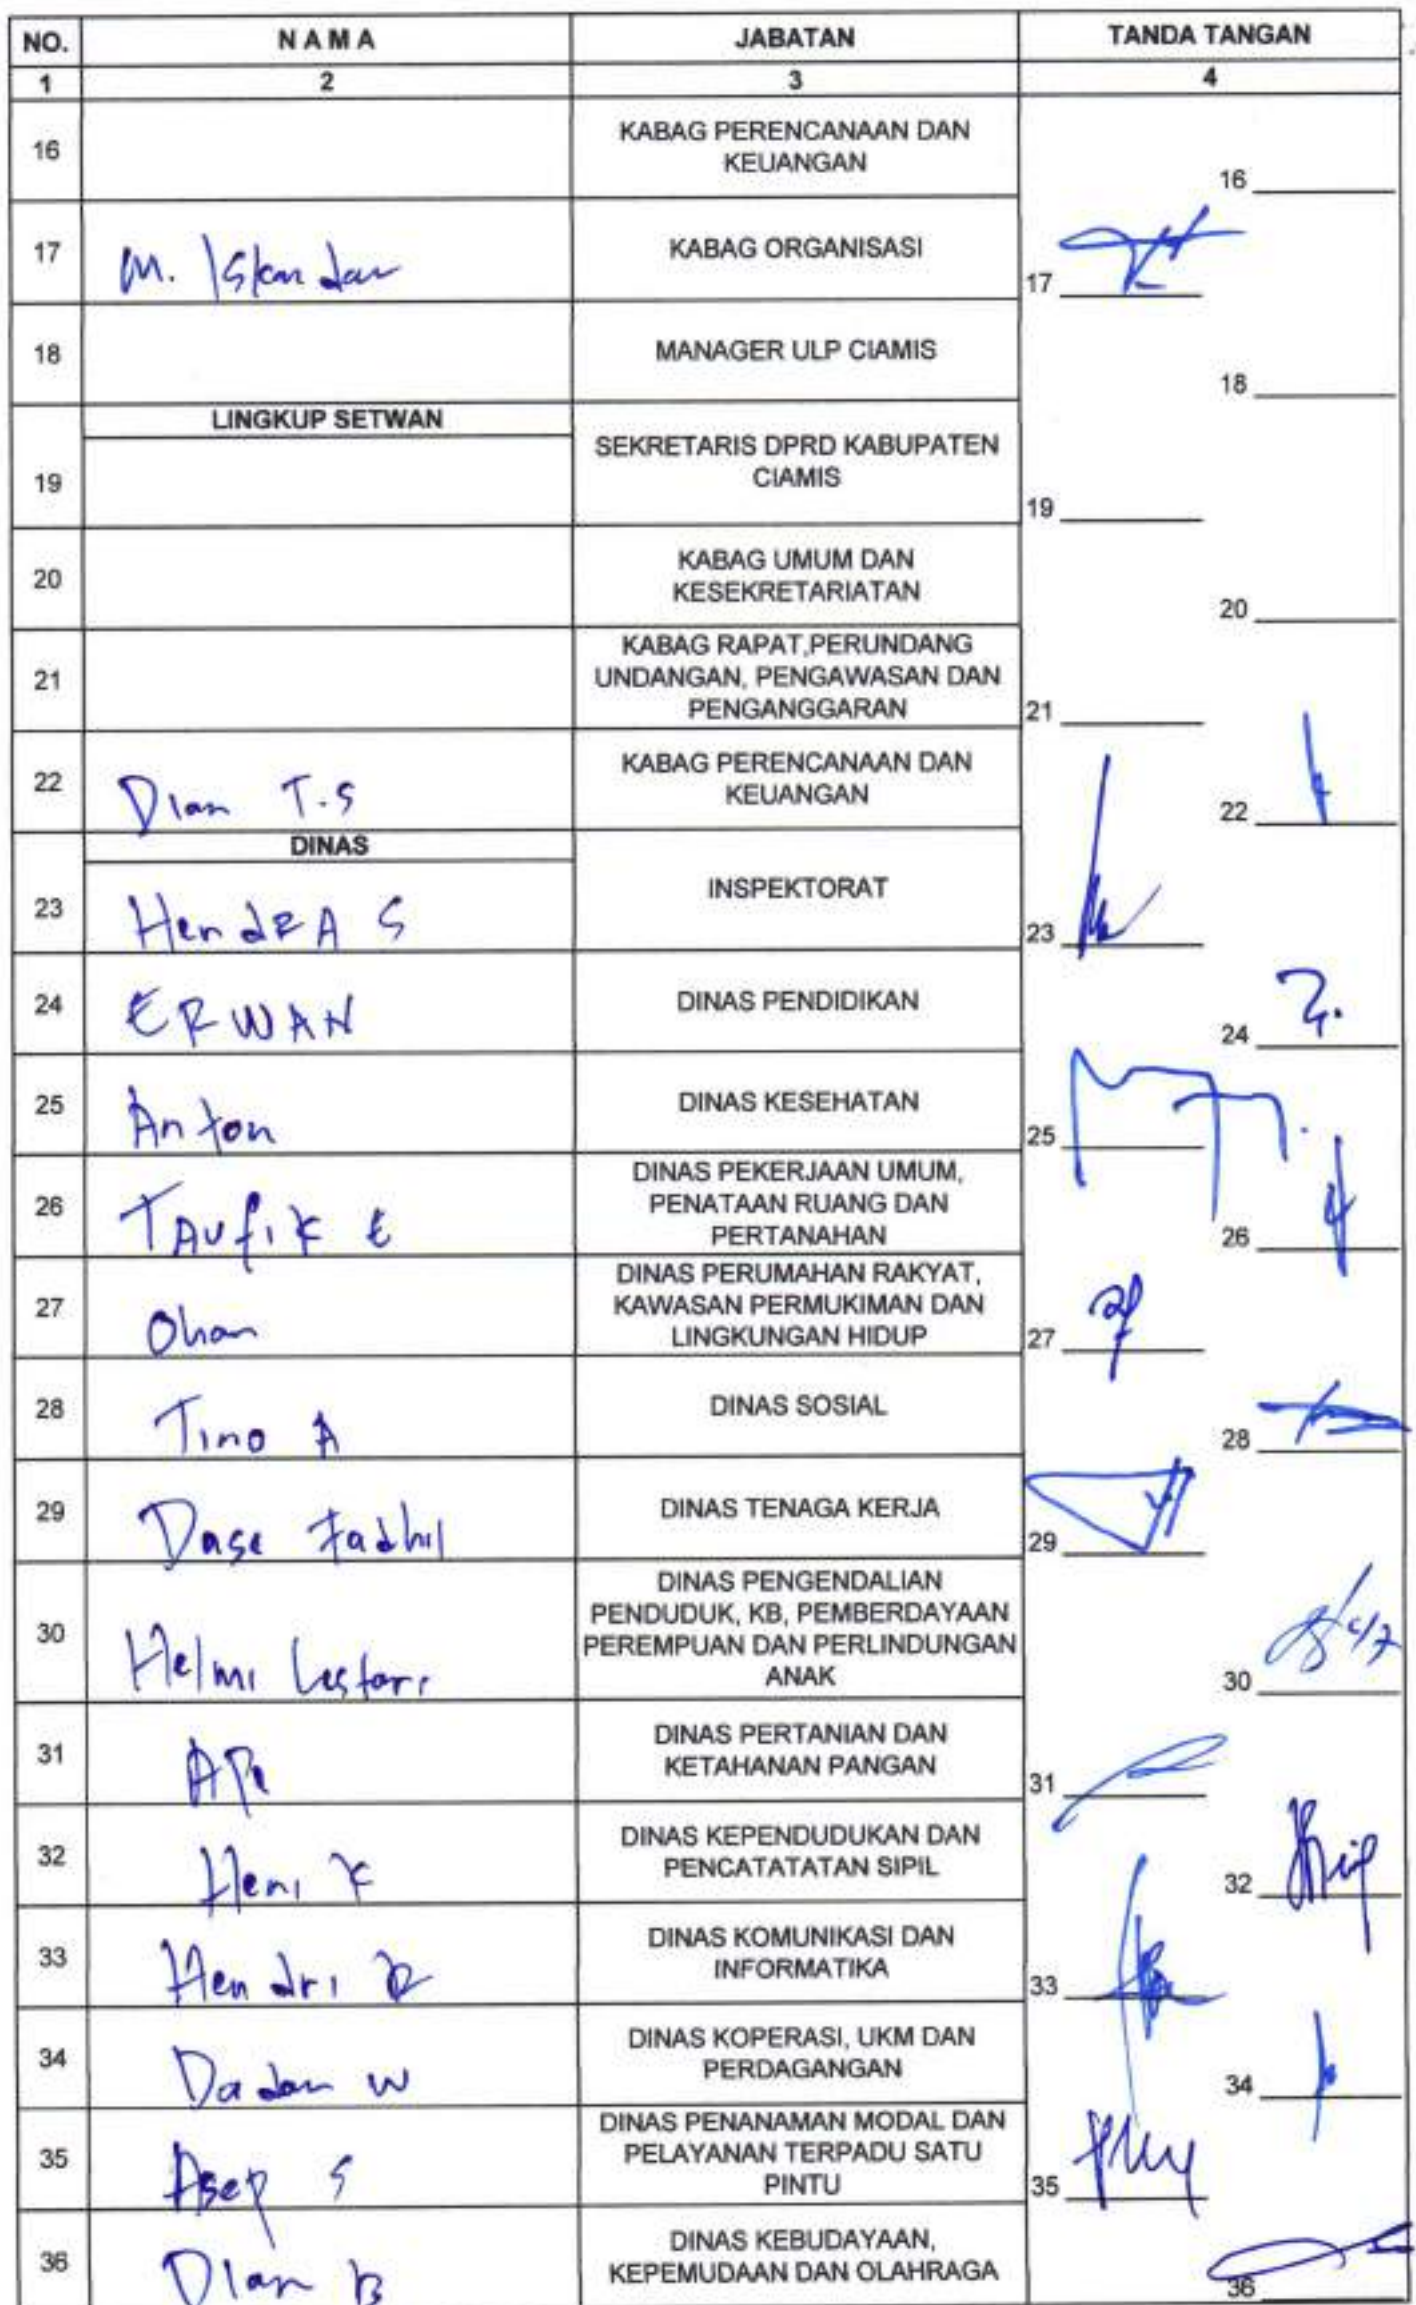 NO. N A M A JABATAN TANDA TANGAN
1 2 3 4
16 KABAG PERENCANAAN DAN
KEUANGAN
16
17 M. Iskandar KABAG ORGANISASI
17
18 MANAGER ULP CIAMIS
18
LINGKUP SETWAN
19 SEKRETARIS DPRD KABUPATEN
CIAMIS
19
20 KABAG UMUM DAN
KESEKRETARIATAN
20
21 KABAG RAPAT,PERUNDANG
UNDANGAN, PENGAWASAN DAN
PENGANGGARAN
21
22 Dian T.S KABAG PERENCANAAN DAN
KEUANGAN
22
DINAS
23 HendRA S INSPEKTORAT
23
24 ERWAN DINAS PENDIDIKAN
24
25 Anton DINAS KESEHATAN
25
26 TAufik E DINAS PEKERJAAN UMUM,
PENATAAN RUANG DAN
PERTANAHAN
26
27 Ohan DINAS PERUMAHAN RAKYAT,
KAWASAN PERMUKIMAN DAN
LINGKUNGAN HIDUP
27
28 Tino A DINAS SOSIAL
28
29 Dase Fadhil DINAS TENAGA KERJA
29
30 Helmi Lestari DINAS PENGENDALIAN
PENDUDUK, KB, PEMBERDAYAAN
PEREMPUAN DAN PERLINDUNGAN
ANAK
30
31 DINAS PERTANIAN DAN
KETAHANAN PANGAN
31
32 Heni K DINAS KEPENDUDUKAN DAN
PENCATATATAN SIPIL
32
33 Hendri DINAS KOMUNIKASI DAN
INFORMATIKA
33
34 Dadan W DINAS KOPERASI, UKM DAN
PERDAGANGAN
34
35 Asep S DINAS PENANAMAN MODAL DAN
PELAYANAN TERPADU SATU
PINTU
35
36 Dian B DINAS KEBUDAYAAN,
KEPEMUDAAN DAN OLAHRAGA
36